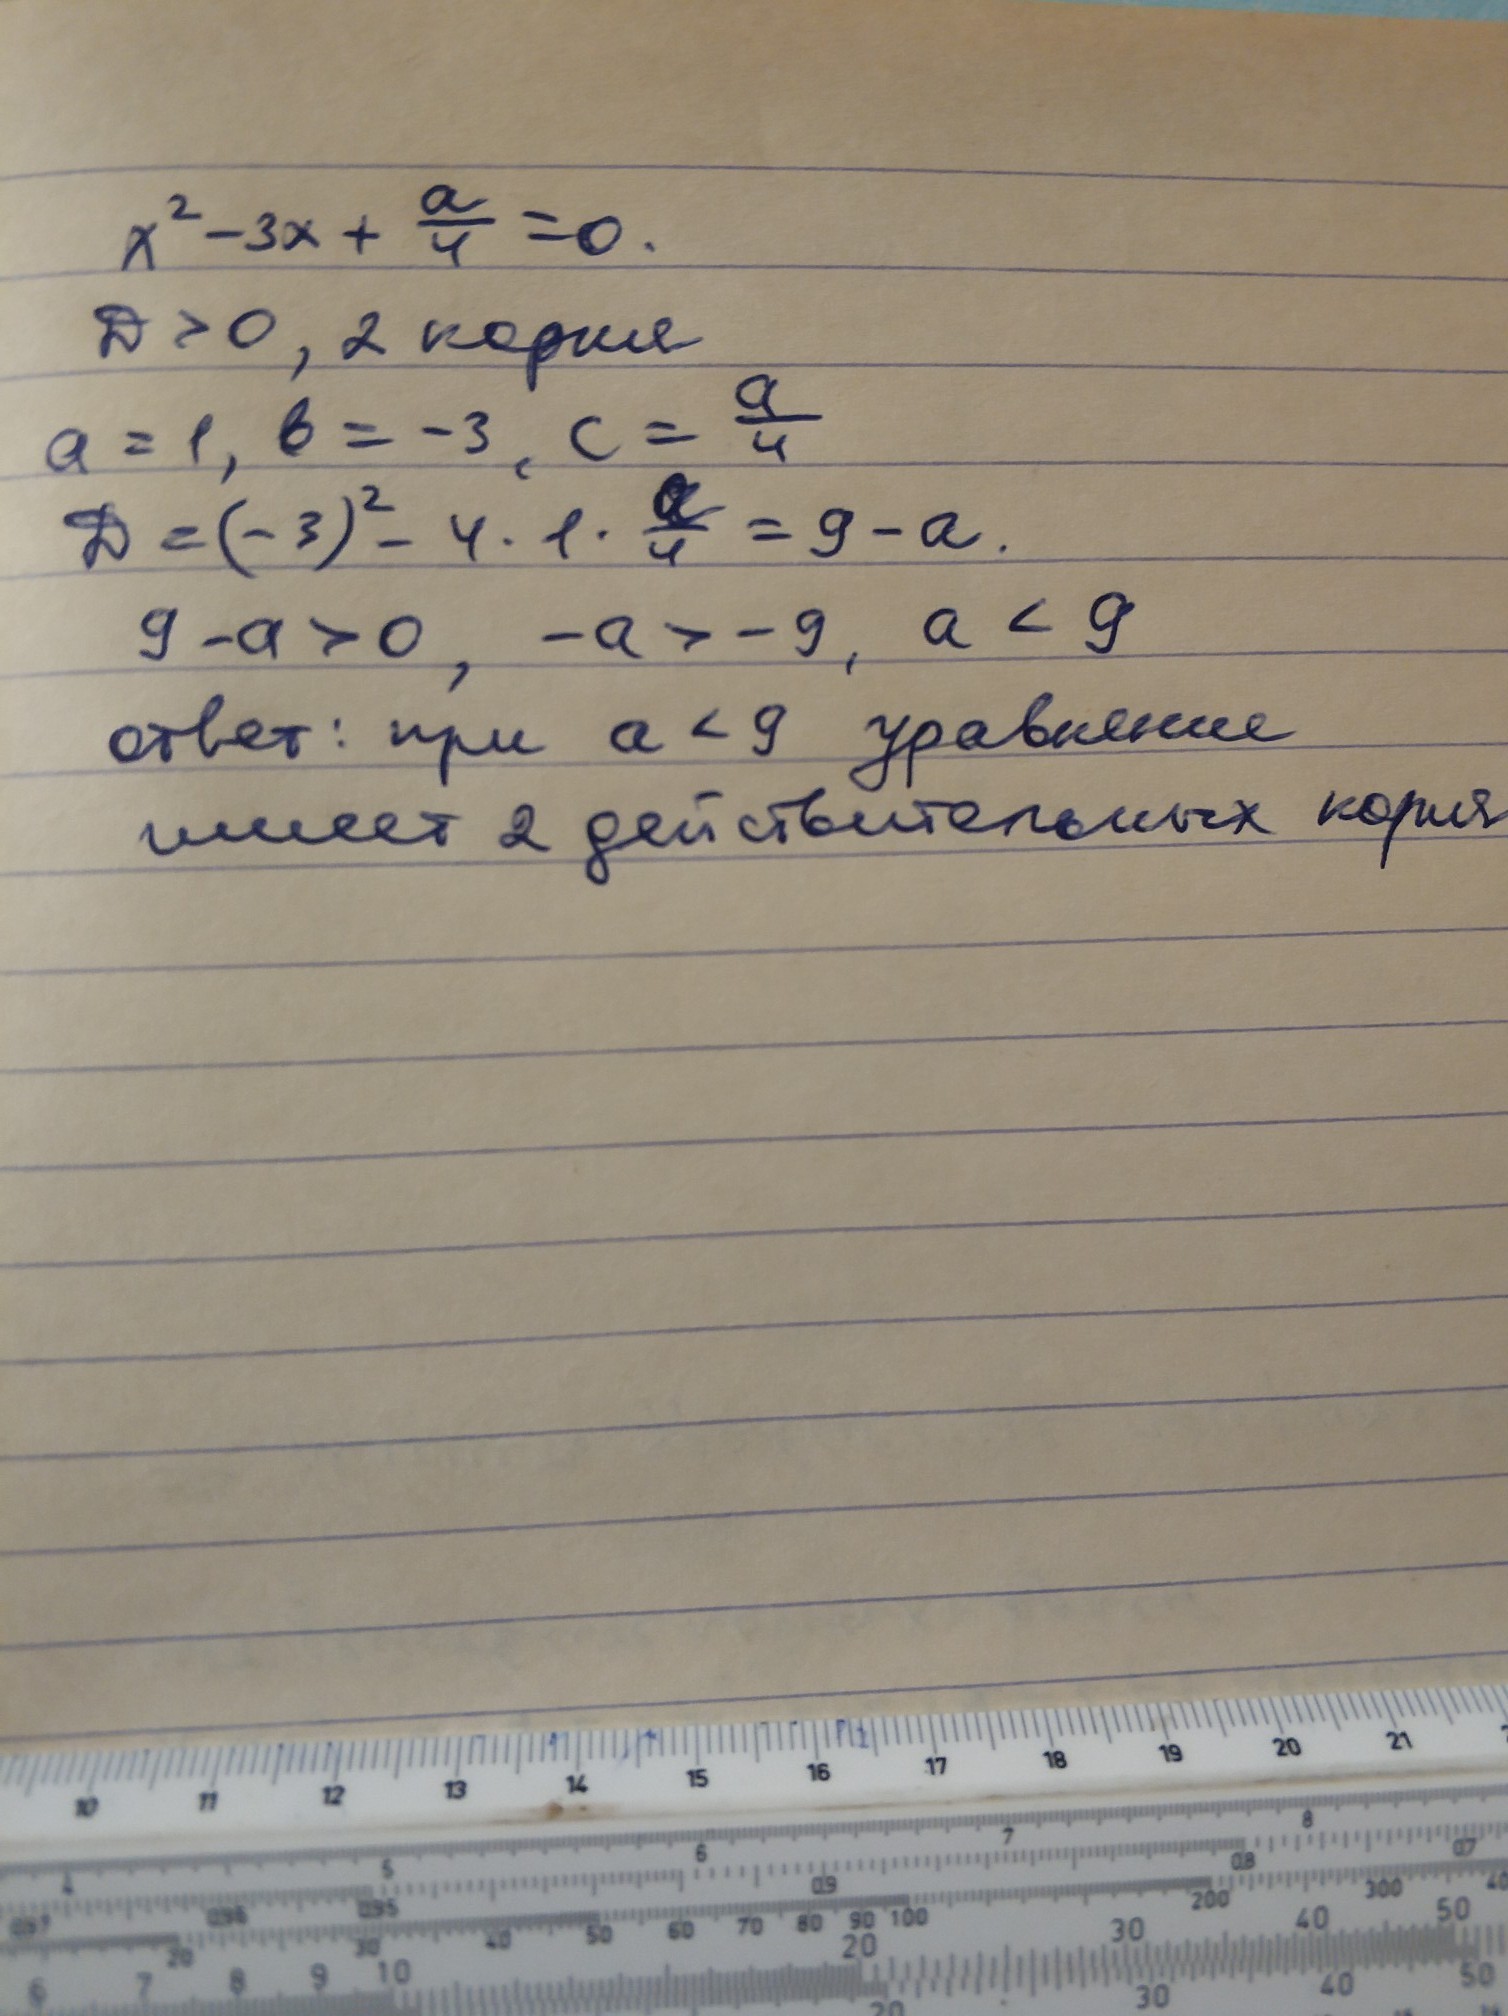 x² - 3x + a/4 = 0.
D > 0, 2 корня
a = 1, b = -3, c = a/4
D = (-3)² - 4 · 1 · a/4 = 9 - a.
9 - a > 0, -a > -9, a < 9
ответ: при a < 9 уравнение
имеет 2 действительных корня
10 11 12 13 14 15 16 17 18 19 20 21
4 5 6 7 8
0.97 0.96 0.95 0.9 0.8 0.7
20 30 40 50 60 70 80 90 100 200 300 40
6 7 8 9 10 20 30 40 50
20 30 40 50